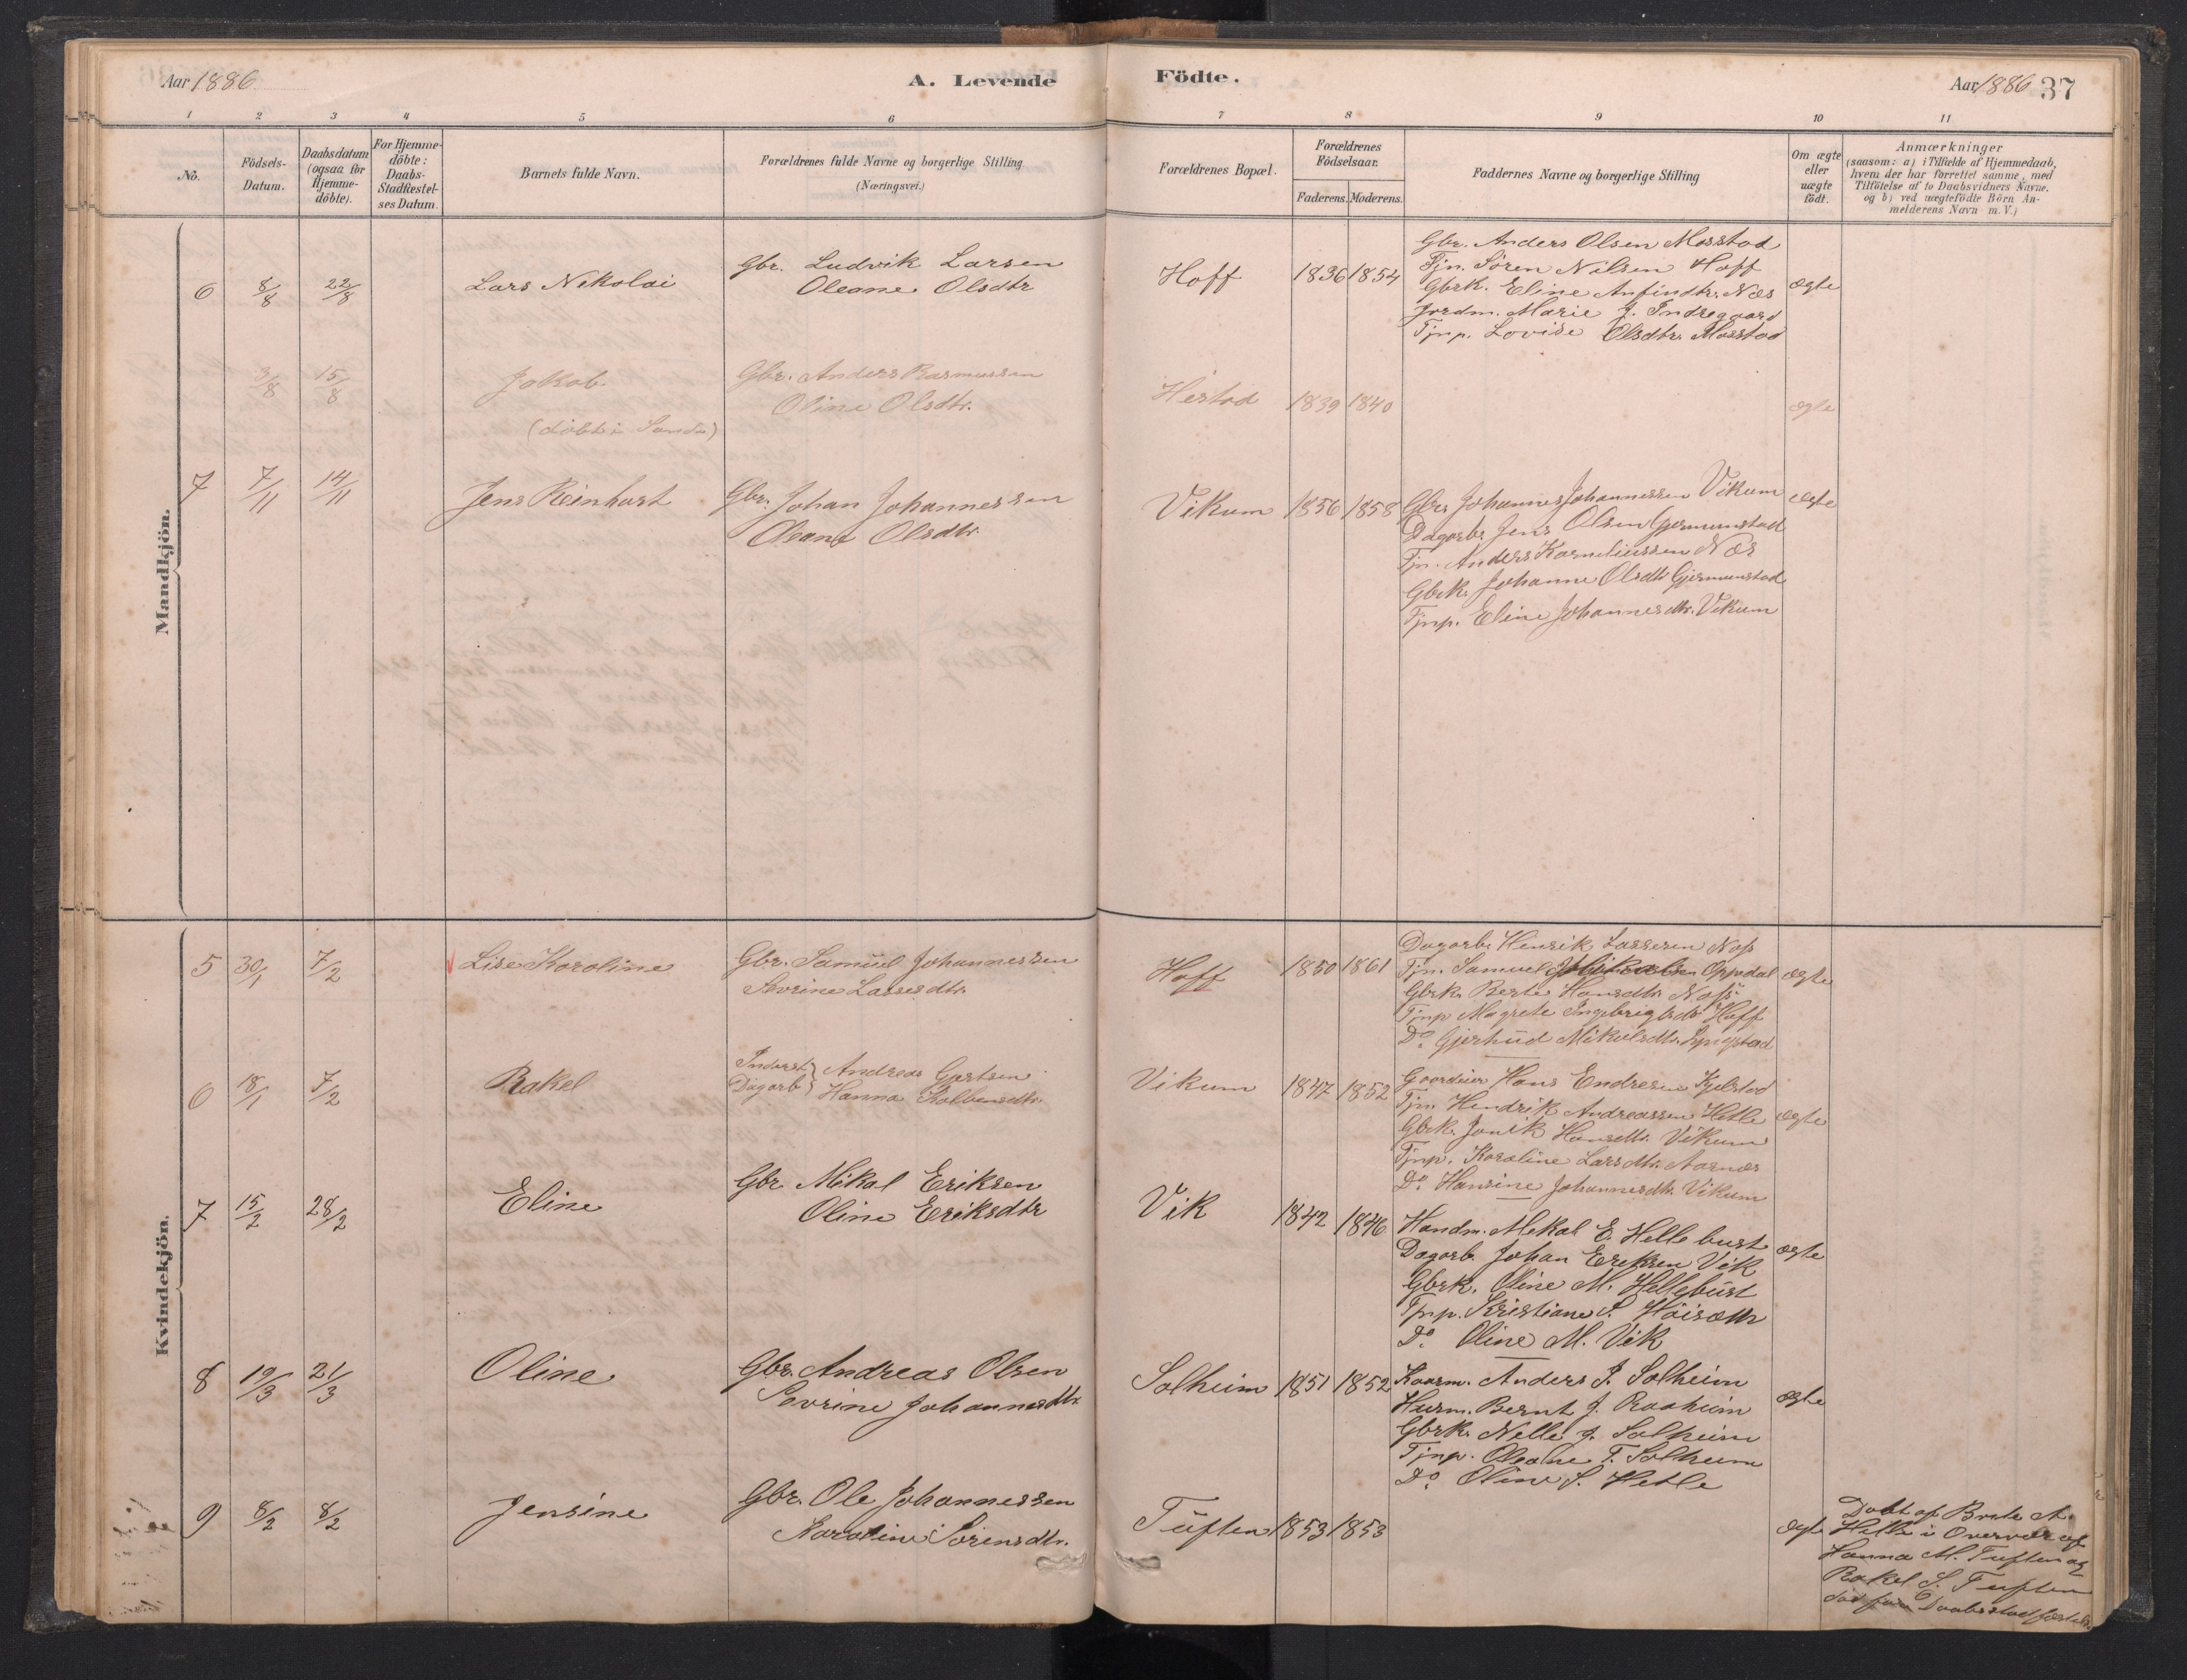 Aar 1886
A. Levende
Födte.
Aar 1886
37
1 2 3 4 5 6 7 8 9 10 11
No.
Födsels-
Datum.
Daabsdatum
(ogsaa for
Hjemme-
döbte).
For Hjemme-
döbte:
Daabs-
Stadfæstel-
ses Datum.
Barnets fulde Navn.
Forældrenes fulde Navne og borgerlige Stilling
(Næringsvei.)
Forældrenes Bopæl.
Forældrenes
Födselsaar.
Faderens. Moderens.
Faddernes Navne og borgerlige Stilling
Om ægte
eller
uægte
födt.
Anmærkninger
(saasom: a) i Tilfælde af Hjemmedaab,
hvem der har forrettet samme, med
Tilföielse af to Daabsvidners Navne.
og b) ved uægtefödte Börn An-
melderens Navn m. V.)
Mandkjön.
6 8/8 22/8 Lars Nikolai
Gbr. Ludvik Larsen
Oleane Olsdtr
Hoff 1836 1854
Gbr. Anders Olsen Mosstad
Tjn. Sören Nilsen Hoff
Gbrk. Eline Anfindtr. Næs
Jordm. Marie J. Indregaard
Tjnp. Lovise Olsdtr. Mosstad
ægte
3/8 15/8 Jakob
(döbt i Sande)
Gbr. Anders Rasmussen
Oline Olsdtr.
Hestad 1839 1840
ægte
7 7/11 14/11 Jens Reinhart
Gbr. Johan Johannessen
Oleane Olsdtr.
Vikum 1856 1858
Gbr. Johannes Johannessen Vikum
Dagarb. Jens Olsen Gjermunstad
Tjn. Anders Korneliussen Næs
Gbrk. Johanne Olsdtr Gjermunstad
Tjnp. Eline Johannesdtr. Vikum
ægte
Kvindekjön.
5 30/1 7/2 Lise Karoline
Gbr. Samuel Johannessen
Sevrine Lassesdtr.
Hoff 1850 1861
Dagarb. Henrik Lassesen Nass
Tjn. Samuel Oppdal
Gbrk. Berte Hansdtr. Nass
Tjnp Magrete Ingebrigtsdtr Hoff
Do. Gjerthud Mikalsdtr.
ægte
6 18/1 7/2 Rakel
Inderst
Dagarb. } Andreas Gjertsen
Hanna Kolbensdtr.
Vikum 1847 1852
Gaardeier Hans Endresen Kjelstad
Tjn. Hendrik Andreassen Hetle
Gbrk. Janik Hansdtr. Vikum
Tjnp. Karoline Larsdtr. Aarnæs
Do. Hansine Johannesdtr. Vikum
ægte
7 15/2 28/2 Eline
Gbr. Mikal Eriksen
Oline Eriksdtr
Vik 1842 1846
Handm. Mekal E. Hellebust
Dagarb. Johan Eriksen Vik
Gbrk. Oline M. Hellebust
Tjnp. Kristiane S. Höisæth
Do. Oline M. Vik
ægte
8 19/3 21/3 Oline
Gbr. Andreas Olsen
Sevrine Johannesdtr.
Solheim 1851 1852
Kaarm. Anders J. Solheim
Husm. Bernt J. Raaheim
Gbrk. Nelle J. Solheim
Tjnp. Oleane T. Solheim
Do. Oline S. Hetle
ægte
9 8/2 8/2 Jensine
Gbr. Ole Johannessen
Karoline Sörensdtr.
Tüften 1853 1853
ægte
Döbt af Brite A.
Hetle i Overvær af
Hanna M. Tuften og
Rakel S. Tuften
död för Daabsstadfæstelse